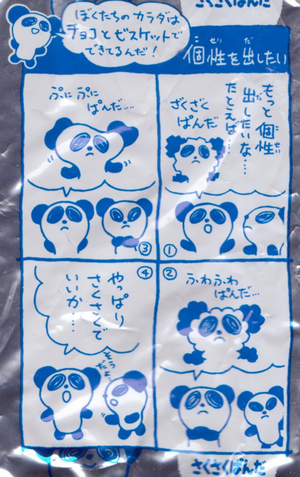 ぼくたちのカラダは
チョコとビスケットで
できてるんだ!
個性を出したい
①
もっと個性
出したいな…
たとえば…
ざくざく
ぱんだ
②
ふわふわ
ぱんだ…
③
ぷにぷに
ぱんだ…
④
やっぱり
さくさくで
いいか…
さくさくぱんだ